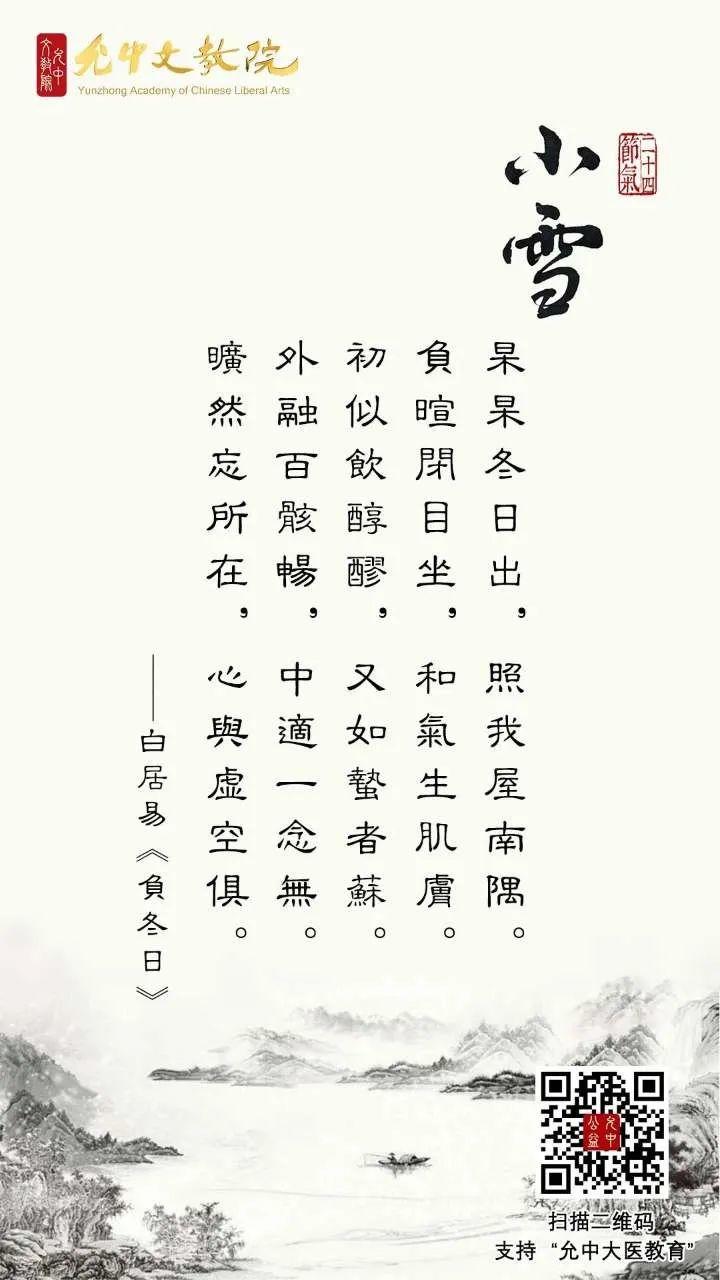 允中文教院
允中文教院
Yunzhong Academy of Chinese Liberal Arts
二十四節氣
小雪
杲杲冬日出，照我屋南隅。
負暄閉目坐，和氣生肌膚。
初似飲醇醪，又如蟄者蘇。
外融百骸暢，中適一念無。
曠然忘所在，心與虛空俱。
——白居易《負冬日》
允中公益
扫描二维码
支持“允中大医教育”